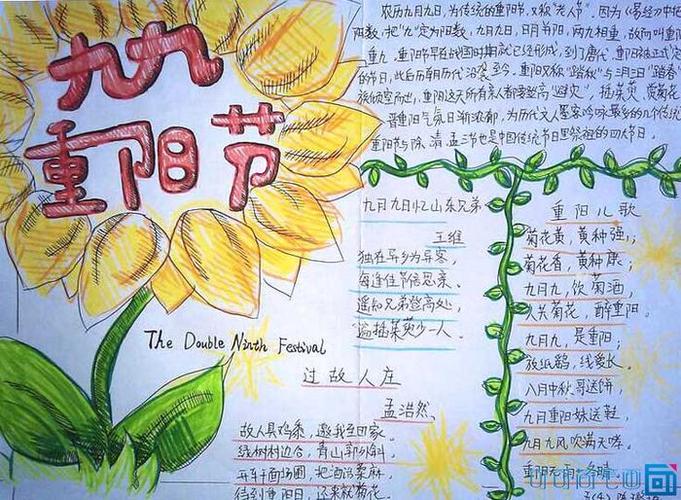 九九
重阳节
The Double Ninth Festival
农历九月九日,为传统的重阳节,又称"老人节"。因为《易经》中把
阳数,把"九"定为阳数,九月九日,日月并阳,两九相重,故而叫重阳
重九,重阳节早在战国时期就已经形成,到了唐代,重阳被正式定
的节日,此后历朝历代沿袭至今。重阳又称"踏秋"与三月三日"踏春"
族倾室而出,重阳这天所有亲人都要登高"避灾",插茱萸,赏菊花
重阳节与除、清、盂三节也是中国传统节日里祭祖的四大节日。
九月九日忆山东兄弟
王维
独在异乡为异客,
每逢佳节倍思亲。
遥知兄弟登高处,
遍插茱萸少一人。
过故人庄
孟浩然
故人具鸡黍,邀我至田家。
绿树村边合,青山郭外斜。
开轩面场圃,把酒话桑麻。
待到重阳日,还来就菊花。
重阳儿歌
菊花黄,黄种强;
菊花香,黄种康;
九月九,饮菊酒,
人共菊花,醉重阳。
九月九,是重阳;
放纸鹞,线爱长。
八月中秋哥送饼,
九月重阳妹送鞋,
九月九风吹满天哮。